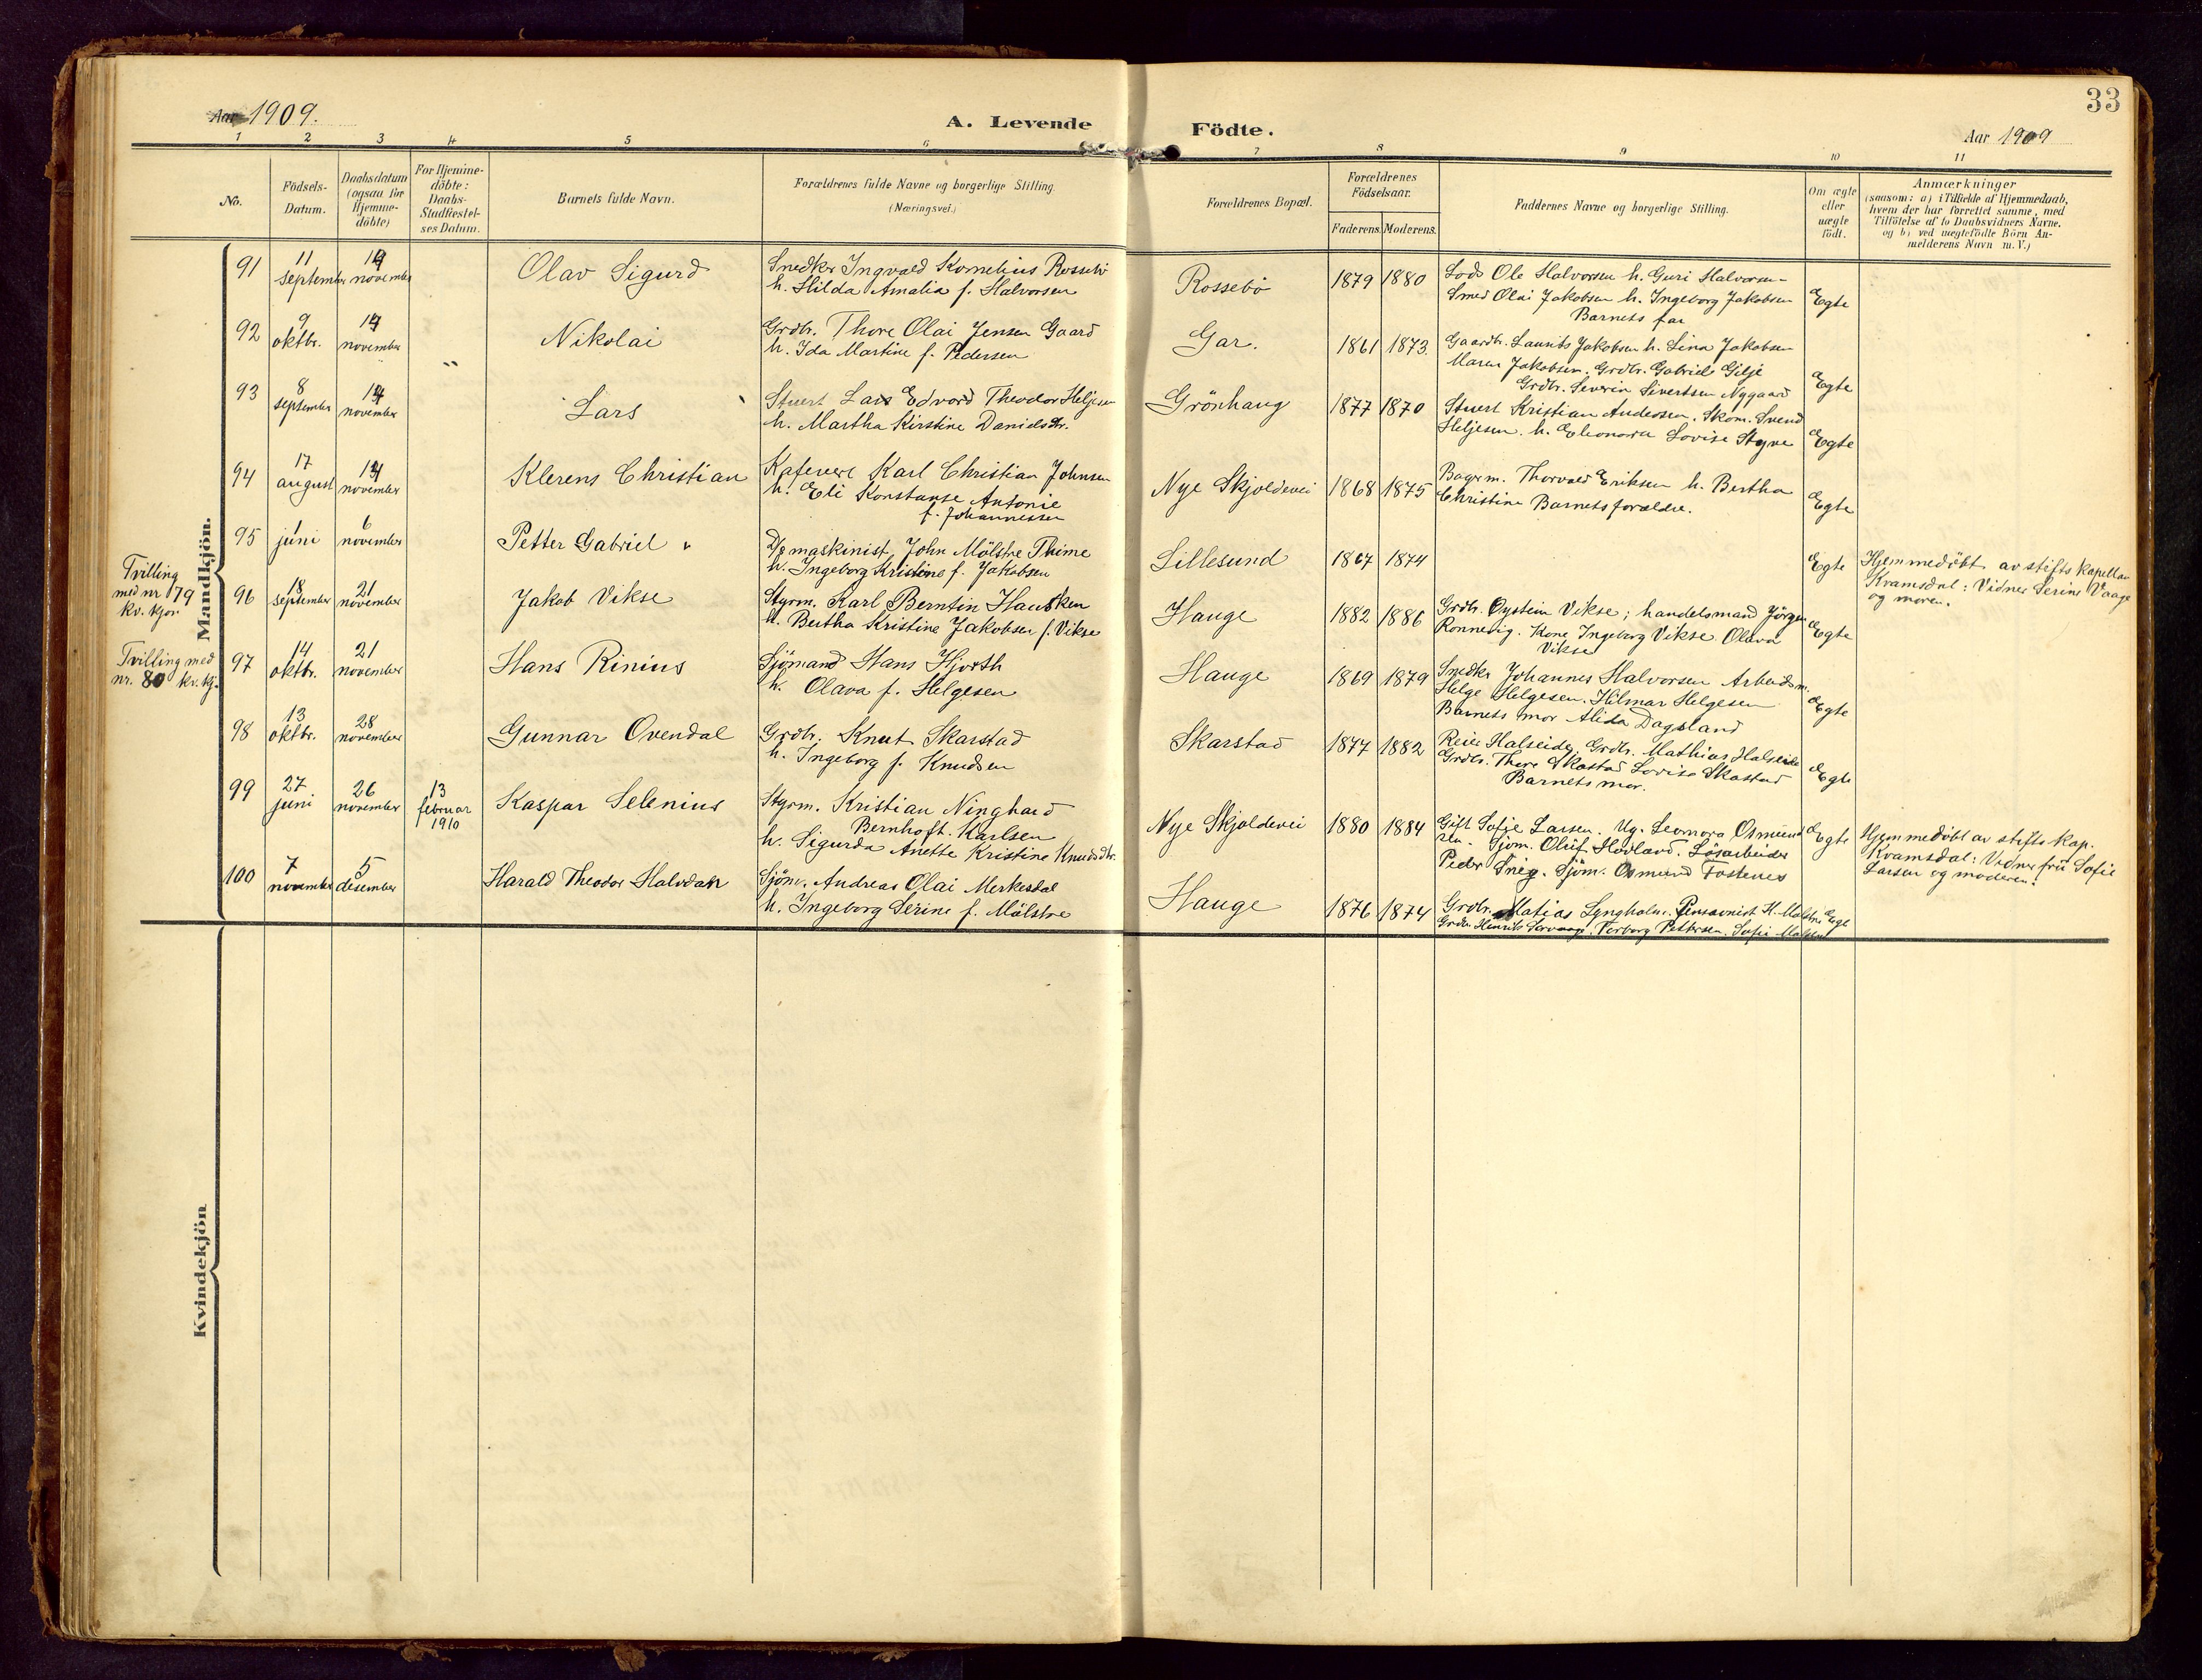 Aar 1909.
A. Levende Födte.
33
Aar 1909
1 2 3 4 5 6 7 8 9 10 11
No.
Födsels-
Datum.
Daabsdatum
(ogsaa for
Hjemme-
döbte)
For Hjemme-
döbte:
Daabs-
Stadfæstel-
ses Datum.
Barnets fulde Navn.
Forældrenes fulde Navne og borgerlige Stilling.
(Næringsvei.)
Forældrenes Bopæl.
Forældrenes
Födselsaar.
Faderens. Moderens.
Faddernes Navne og borgerlige Stilling.
Om ægte
eller
uægte
födt.
Anmærkninger
(saasom: a) i Tilfælde af Hjemmedaab,
hvem der har forrettet samme, med
Tilföielse af to Daabsvidners Navne,
og b) ved uægtefödte Börn An-
melderens Navn m. V.)
Mandkjön.
91
11
september
14
november
Olav Sigurd
Snedker Ingvald Kornelius Rossebö
h. Hilda Amalia f. Halvorsen
Rossebö
1879 1880
Lods Ole Halvorsen h. Guri Halvorsen
Smed Olai Jakobsen h. Ingeborg Jakobsen
Barnets far
Egte
92
9
oktbr.
14
november
Nikolai
Grdbr. Thore Olai Jensen Gaard
h. Ida Martine f. Pedersen
Gar.
1861 1873
Gaardbr. Laurits Jakobsen h. Lina Jakobsen
Maren Jakobsen. Grdbr. Gabriels Gilje
Grdbr. Severin Sivertsen Nygaard
Egte
93
8
september
14
november
Lars
Stuert Lars Edvard Theodor Heljesen
h. Martha Kirstine Danielsdtr.
Grönhaug
1877 1870
Stuert Kristian Andersen. Skom. Svend
Heljesen. h. Eleonora Lovise Styve
Egte
94
17
august
14
november
Klerens Christian
Kafevert Karl Christian Johnsen
h. Eli Konstanse Antonie
f. Johannessen
Nye Skjoldevei
1868 1875
Bagerm. Thorvald Eriksen h. Bertha
Christine Barnets forældre.
Egte
95
1
juni
6
november
Petter Gabriel
D/s maskinist John Mölstre Thime
h. Ingeborg Kristine f. Jakobsen
Lillesund
1867 1874
Egte
Hjemmedöbt av stiftskapellan
Kvamsdal: Vidner Serine Vaage
og moren.
Tvilling
med nr 79
kv. kjön
96
18
september
21
november
Jakob Vikse
Styrm. Karl Berntin Hausken
h. Bertha Kristine Jakobsen f. Vikse
Hauge
1882 1886
Grdbr. Oystein Vikse; handelsmand Jörgen
Rönnevig. Kone Ingeborg Vikse Olava
Vikse
Egte
Tvilling med
nr. 80 kv. kj.
97
14
oktbr.
21
november
Hans Rinius
Sjömand Hans Hjorth
h. Olava f. Helgesen
Hauge
1869 1879
Snedkr Johannes Halvorsen Arbeidsm.
Helge Helgesen. Hilmar Helgesen
Barnets mor Alida Dagsland
Egte
98
13
oktbr.
28
november
Gunnar Ovendal
Grdbr. Knut Skarstad
h. Ingeborg f. Knudsen
Skarstad
1877 1882
Reier Halseide, Grdbr. Mathias Halseide
Grdbr. Thore Skastad Lovise Skastad
Barnets mor.
Egte
99
27
juni
26
november
13
februar
1910
Kaspar Selenius
Styrm. Kristian Ninghard
Bernhoft Karlsen
h. Sigurda Anette Kristine Knudsdtr.
Nye Skjoldevei
1880 1884
Gift Sofie Larsen. Ug. Leonora Osmund
Sjöm. Oluf Hovland. Lösarbeider
Peder Sneg. Sjöm. Osmund Fostenes
Egte
Hjemmedöbt av stifts kap.
Kvamsdal: Vidner frú Sofie
Larsen og moderen.
100
7
november
5
desember
Harald Theodor Halvdan
Sjöm. Andreas Olai Merkesdal
h. Ingeborg Serine f. Mölstre
Hauge
1876 1874
Grdbr. Matias Lyngholm. Pensionist H. Mölstre
Grdbr. Henrik Pettersen. Sofie
Egte
Kvindekjön